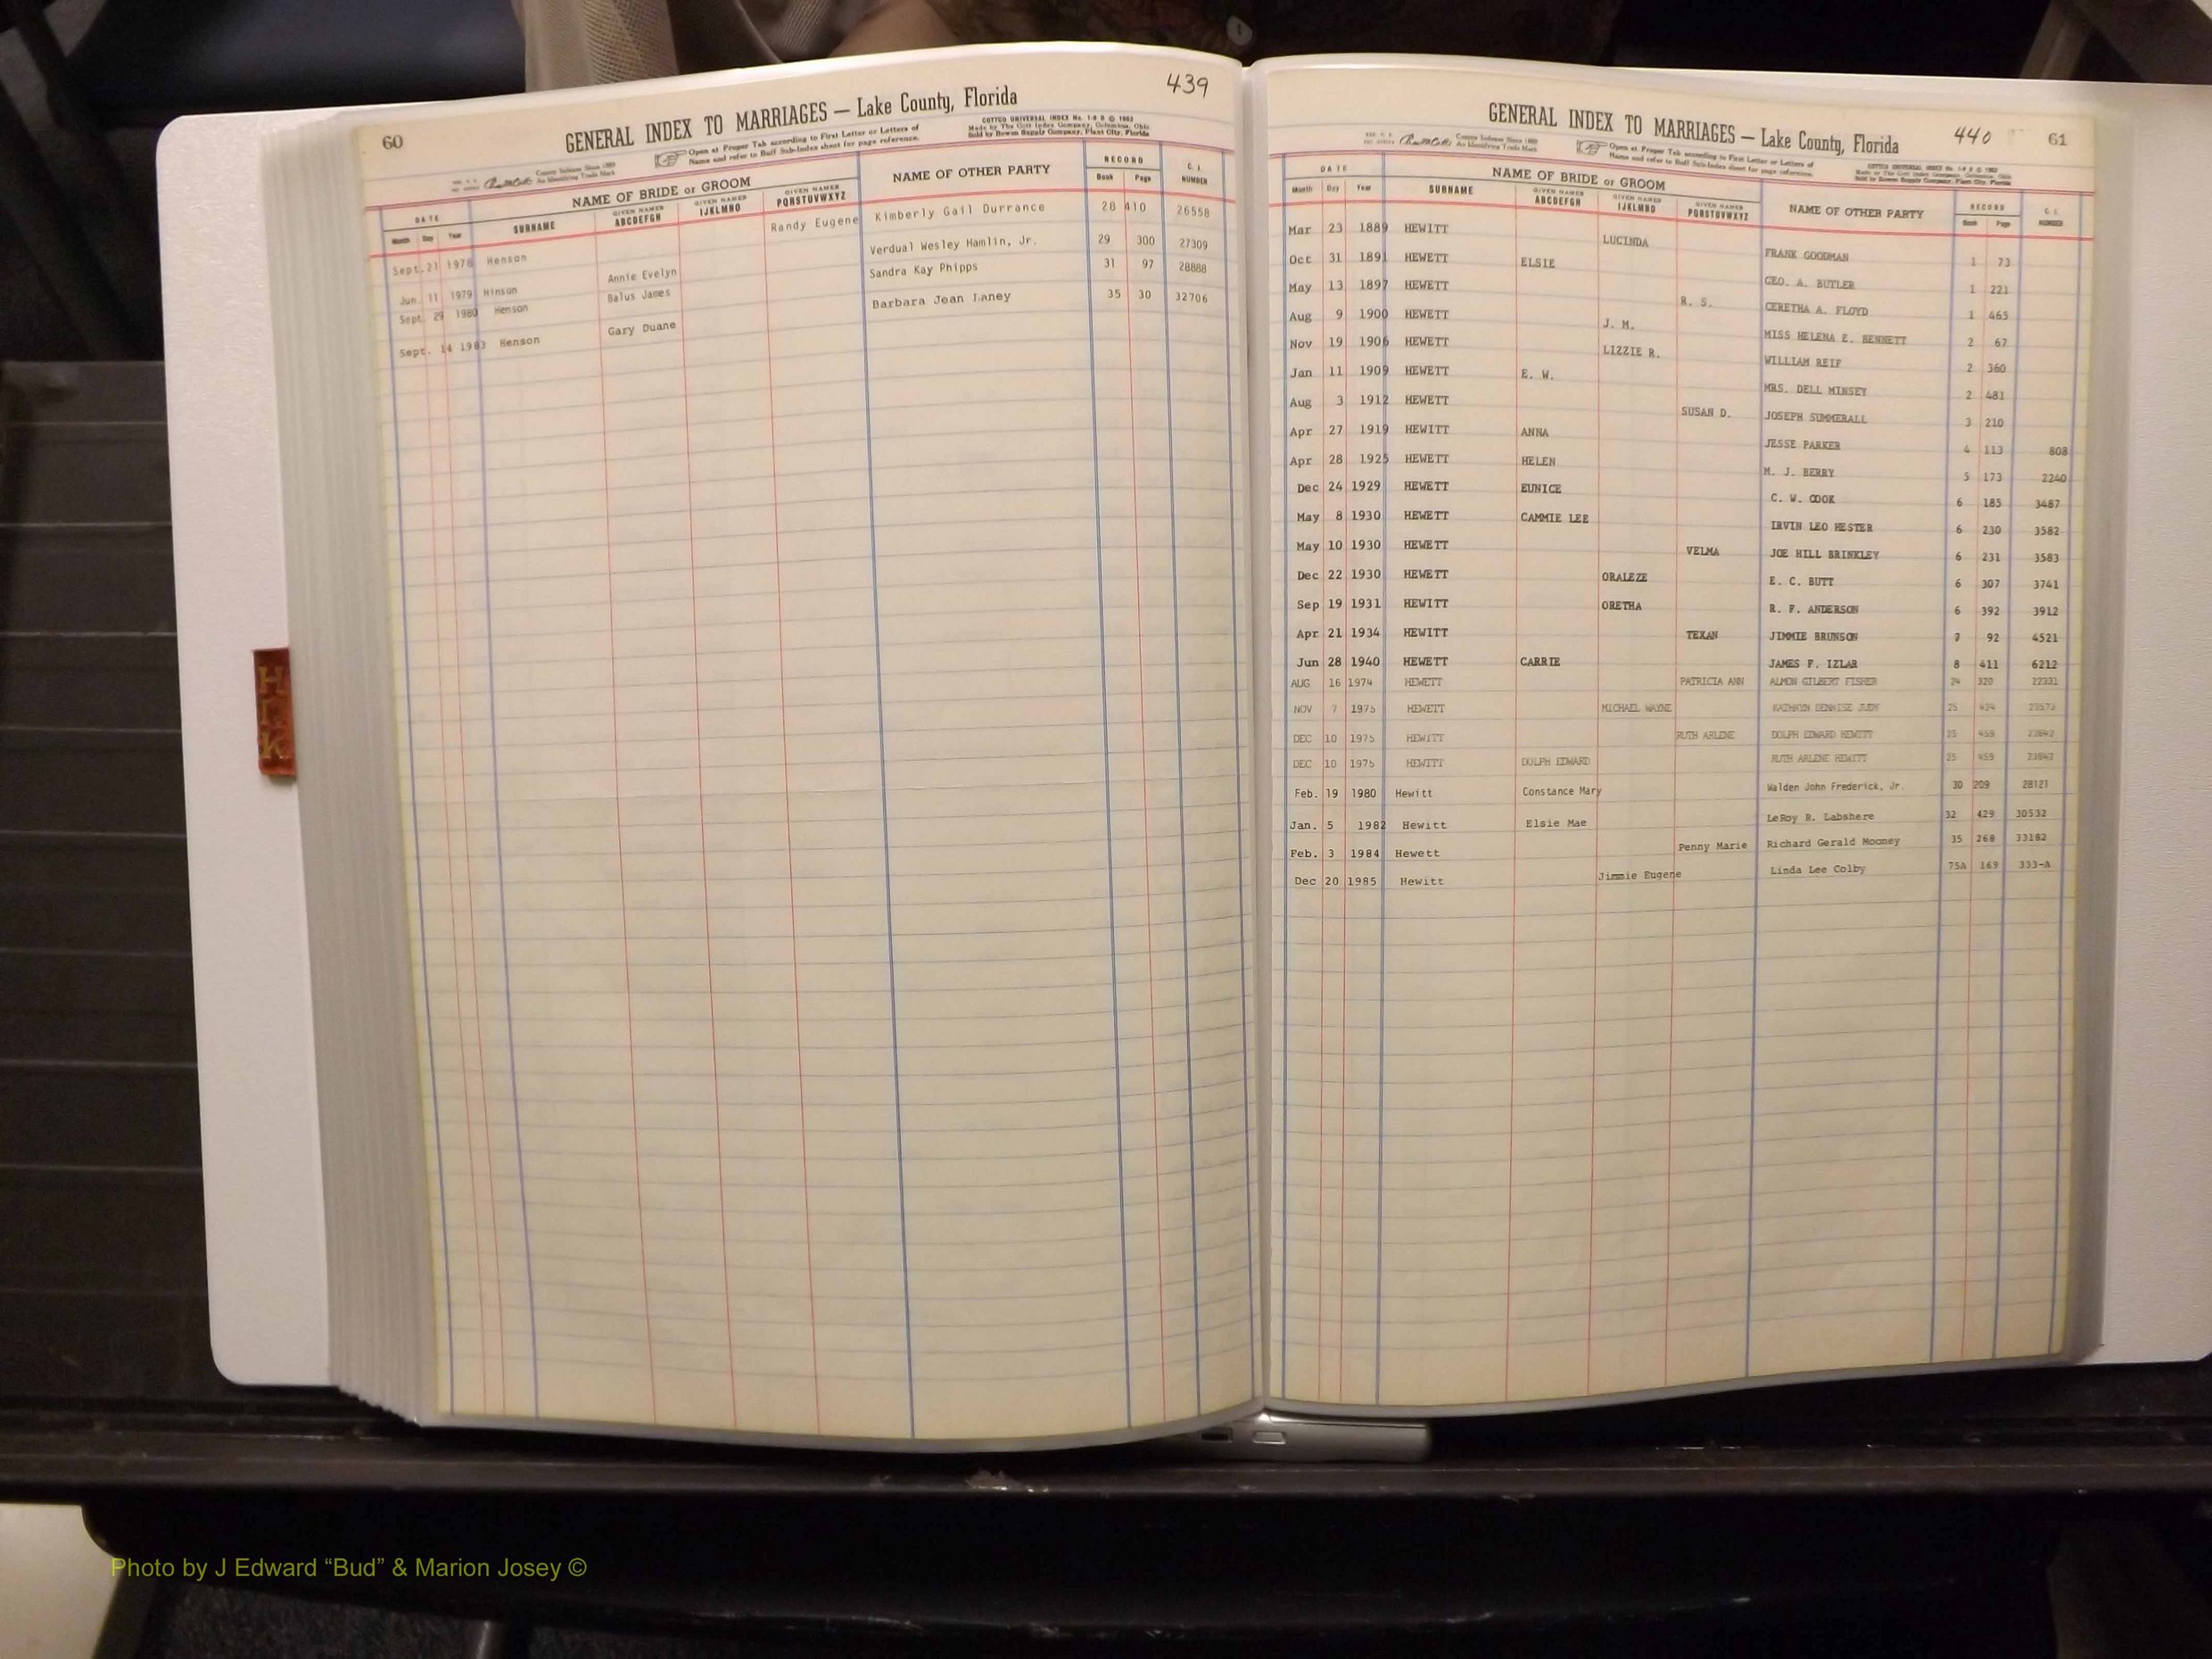 60
439
GENERAL INDEX TO MARRIAGES — Lake County, Florida
Open at Proper Tab according to First Letter or Letters of
Name and refer to Buff Sub-Index sheet for page reference.
COTTCO UNIVERSAL INDEX
Made by The Cott Index Company, Columbus, Ohio
Sold by Bowen Supply Company, Plant City, Florida
DATE NAME OF BRIDE or GROOM NAME OF OTHER PARTY RECORD C. I.
Month Day Year SURNAME GIVEN NAMES ABCDEFGH GIVEN NAMES IJKLMNO GIVEN NAMES PQRSTUVWXYZ Book Page NUMBER
Sept. 21 1978 Henson Randy Eugene Kimberly Gail Durrance 28 410 26558
Jun. 11 1979 Hinson Annie Evelyn Verdual Wesley Hamlin, Jr. 29 300 27309
Sept. 29 1980 Henson Balus James Sandra Kay Phipps 31 97 28888
Sept. 14 1983 Henson Gary Duane Barbara Jean Laney 35 30 32706
GENERAL INDEX TO MARRIAGES — Lake County, Florida
440
61
Open at Proper Tab according to First Letter or Letters of
Name and refer to Buff Sub-Index sheet for page reference.
DATE NAME OF BRIDE or GROOM NAME OF OTHER PARTY RECORD C. I.
Month Day Year SURNAME GIVEN NAMES ABCDEFGH GIVEN NAMES IJKLMNO GIVEN NAMES PQRSTUVWXYZ Book Page NUMBER
Mar 23 1889 HEWITT LUCINDA FRANK GOODMAN 1 73
Oct 31 1891 HEWETT ELSIE GEO. A. BUTLER 1 221
May 13 1897 HEWETT R. S. CERETHA A. FLOYD 1 465
Aug 9 1900 HEWETT J. M. MISS HELENA E. BENNETT 2 67
Nov 19 1906 HEWETT LIZZIE R. WILLIAM REIF 2 360
Jan 11 1909 HEWETT E. W. MRS. DELL MINSEY 2 481
Aug 3 1912 HEWETT SUSAN D. JOSEPH SUMMERALL 3 210
Apr 27 1919 HEWITT ANNA JESSE PARKER 4 113 808
Apr 28 1925 HEWETT HELEN M. J. BERRY 5 173 2240
Dec 24 1929 HEWETT EUNICE C. W. COOK 6 185 3487
May 8 1930 HEWETT CAMMIE LEE IRVIN LEO HESTER 6 230 3582
May 10 1930 HEWETT VELMA JOE HILL BRINKLEY 6 231 3583
Dec 22 1930 HEWETT ORALEZE E. C. BUTT 6 307 3741
Sep 19 1931 HEWITT ORETHA R. F. ANDERSON 6 392 3912
Apr 21 1934 HEWITT TEXAN JIMMIE BRUNSON 7 92 4521
Jun 28 1940 HEWETT CARRIE JAMES F. IZLAR 8 411 6212
AUG 16 1974 HEWETT PATRICIA ANN ALMON GILBERT FISHER 24 320 22331
NOV 7 1975 HEWETT MICHAEL WAYNE KATHRYN DENNISE JUDY 25 424
DEC 10 1975 HEWITT RUTH ARLENE DOLPH EDWARD HEWITT 25 459 23642
DEC 10 1975 HEWITT DOLPH EDWARD RUTH ARLENE HEWITT 25 459 23642
Feb. 19 1980 Hewitt Constance Mary Walden John Frederick, Jr. 30 209 28121
Jan. 5 1982 Hewitt Elsie Mae LeRoy R. Labshere 32 429 30532
Feb. 3 1984 Hewett Penny Marie Richard Gerald Mooney 35 268 33182
Dec 20 1985 Hewitt Jimmie Eugene Linda Lee Colby 75A 169 333-A
H
I
K
Photo by J Edward “Bud” & Marion Josey ©